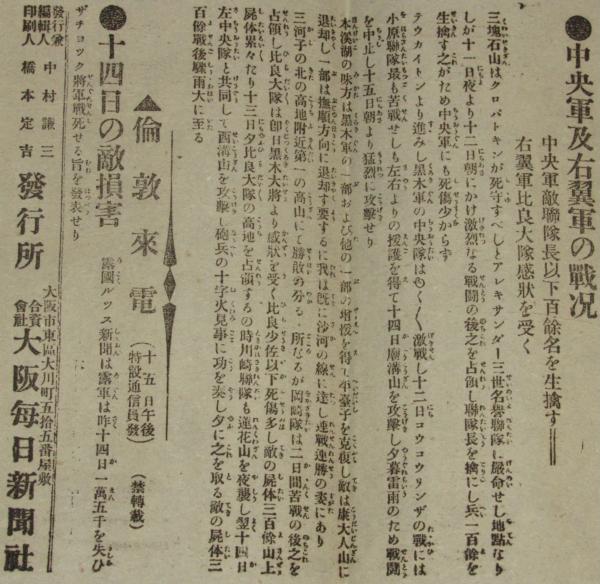 中央軍及右翼軍の戰况
中央軍敵聯隊長以下百餘名を生擒す
右翼軍比良大隊感狀を受く
三塊石山はクロパトキンが死守すべしとアレキサンダー三世名譽聯隊に嚴命せし地點なり
しが十一日夜より十二日朝にかけ激烈なる戰鬪の後之を占領し聯隊長を擒にし兵一百餘を
生擒す之がため中央軍にも死傷少からず
テウカイトンより進みし黑木軍の中央隊は激戰し十二日コウコウリンザの戰には
小原聯隊最も苦戰せしも左右よりの援護を得て十四日廟溝山を攻擊し夕暮雷雨のため戰鬪
を中止し十五日朝より猛烈に攻擊せり
本溪湖の味方は黑木軍の一部および他の一部の增援を得て平臺子を克復し敵は康大人山に
退却し一部は撫順方向に退却す要するに我は既に沙河の線に達し連戰連勝の姿にあり
三河子の北の高地附近第一の高山にて勝敗の分るゝ所なるが岡崎隊は二日間苦戰の後之を
占領し比良大隊は卽日黑木大將より感狀を受く比良少佐以下死傷多し敵の屍体三百餘山上
屍体累々たり十三日夕比良大隊の高地を占領するの時川崎聯隊も蓮花山を夜襲し翌十四日
左中央隊と共同して西溝山を攻擊し砲兵の十字火見事に功を奏し夕に之を取る敵の屍体三
百餘戰後驟雨大に至る
倫敦來電
(十五日午後特設通信員發)
(禁轉載)
十四日の敵損害
露國ルツス新聞は露軍は昨十四日一萬五千を失ひ
ザチヨツク將軍戰死せる旨を發表せり
發行兼編輯人 中村謙三
印刷人 橋本定吉
發行所
大阪市東區大川町五拾五番屋敷
合資會社 大阪每日新聞社